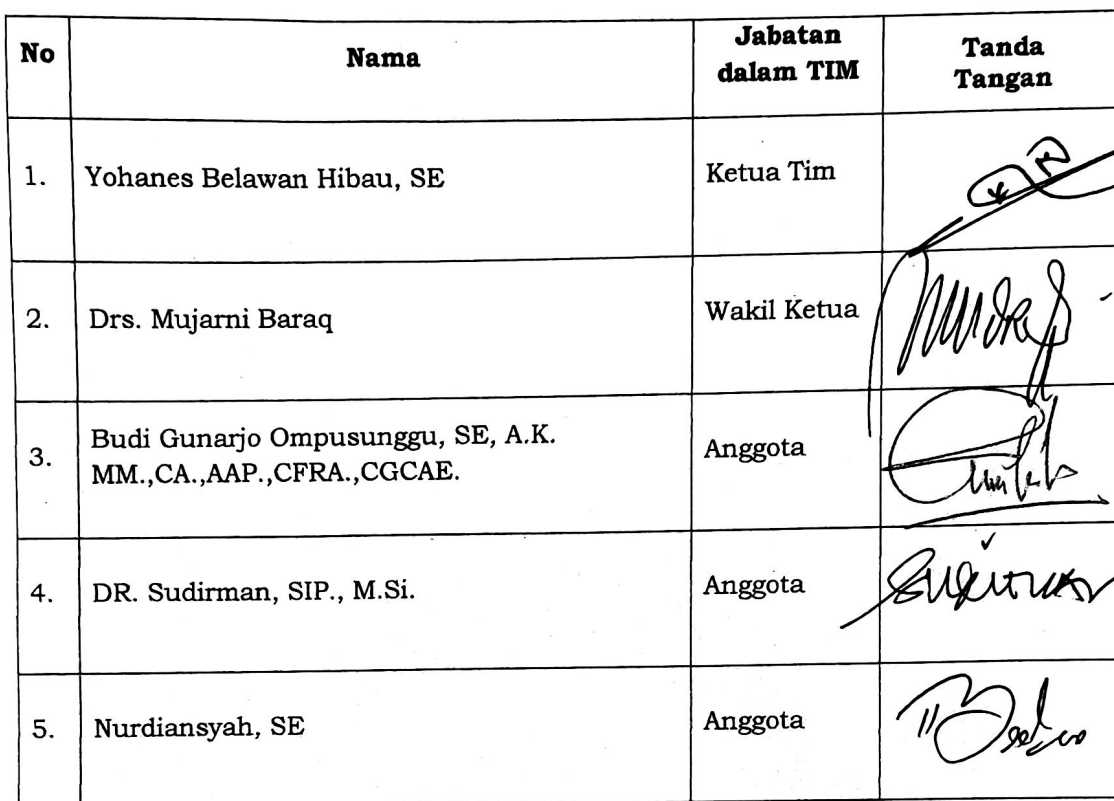 No Nama Jabatan dalam TIM Tanda Tangan
1. Yohanes Belawan Hibau, SE Ketua Tim
2. Drs. Mujarni Baraq Wakil Ketua
3. Budi Gunarjo Ompusunggu, SE, A.K. Anggota
MM.,CA.,AAP.,CFRA.,CGCAE.
4. DR. Sudirman, SIP., M.Si. Anggota
5. Nurdiansyah, SE Anggota